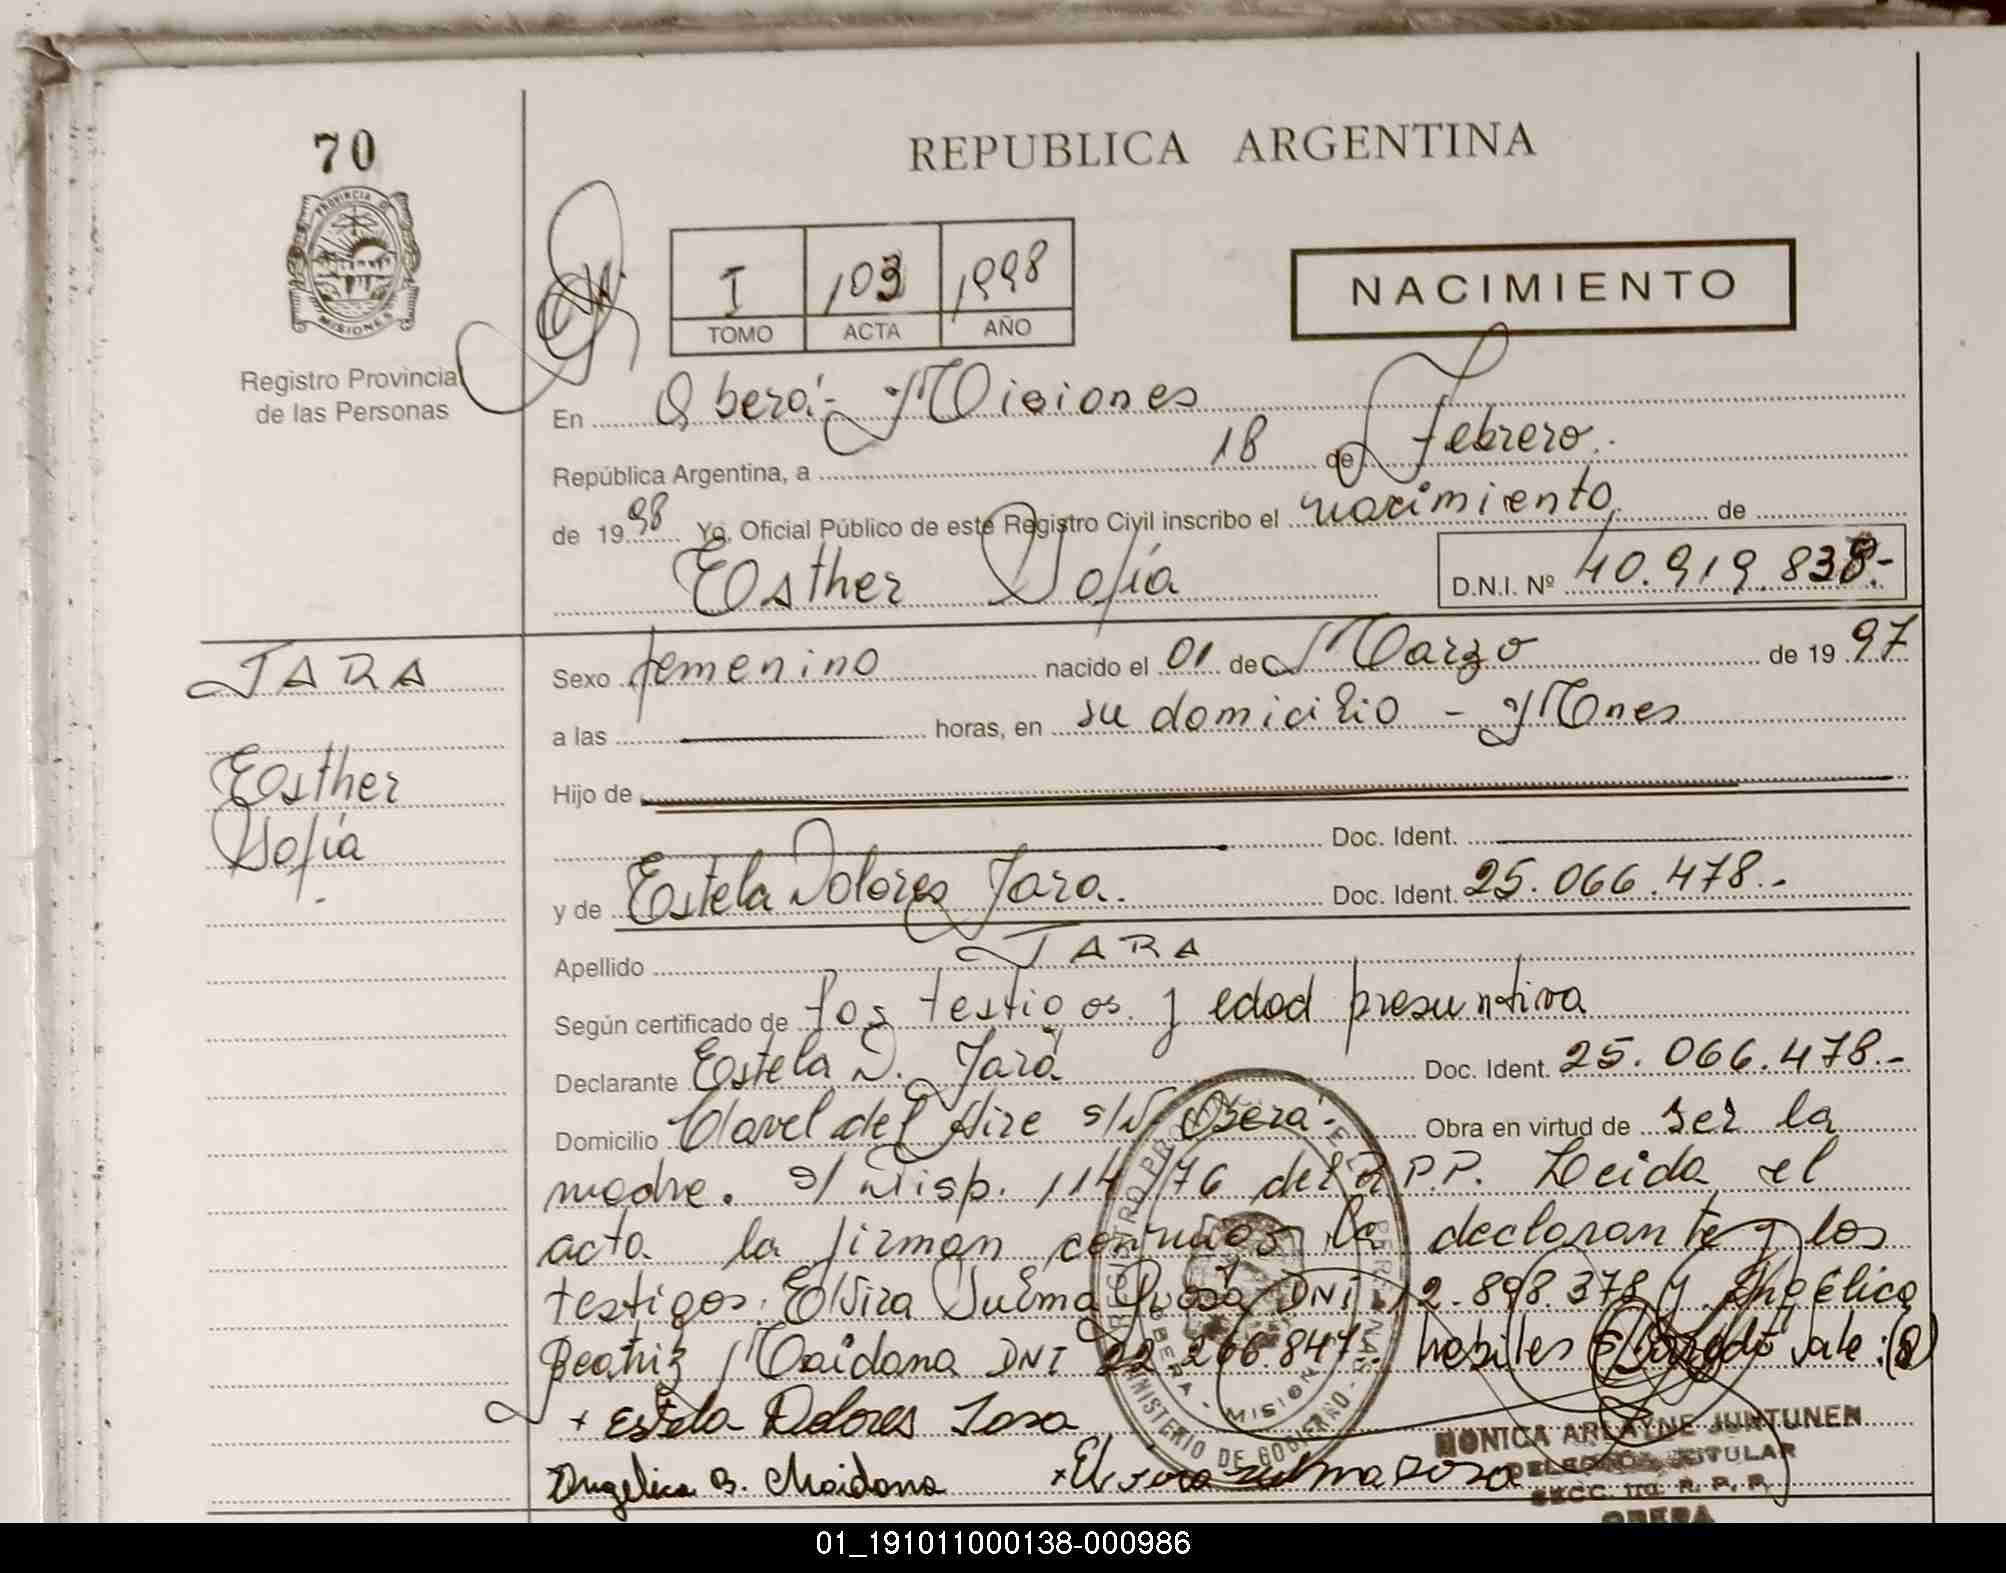 70
REPUBLICA ARGENTINA
PROVINCIA D
MISIONES
Registro Provincial
de las Personas
I 103 1998
TOMO ACTA AÑO
NACIMIENTO
En Oberá - Misiones
República Argentina, a 18 de Febrero.
de 1998 Yo, Oficial Público de este Registro Civil inscribo el nacimiento de
Esther Sofía D.N.I. Nº 40.919.838.-
JARA
Esther
Sofía
Sexo femenino nacido el 01 de Marzo de 1997
a las horas, en su domicilio - Mnes
Hijo de
Doc. Ident.
y de Estela Dolores Jara. Doc. Ident. 25.066.478.-
Apellido JARA
Según certificado de los testigos y edad presuntiva
Declarante Estela D. Jara Doc. Ident. 25.066.478.-
Domicilio Clavel del Aire s/N Oberá. Obra en virtud de ser la
madre. s/ Disp. 114/76 del R.P.P. Leida el
acta la firman conmigo la declarante y los
testigos: Elvira Sulma DNI 12.898.378 y Angélica
Beatriz Maidana DNI 22.266.847. habiles vale: (8)
+ Estela Dolores Jara
Angelica B. Maidana + Elvira Zulma
MONICA ARLAYNE JUNTUNEN
TITULAR
SECC. 1ra. R. P. P.
OBERA
MINISTERIO DE GOBIERNO
OBERA - MISIONES
01_191011000138-000986